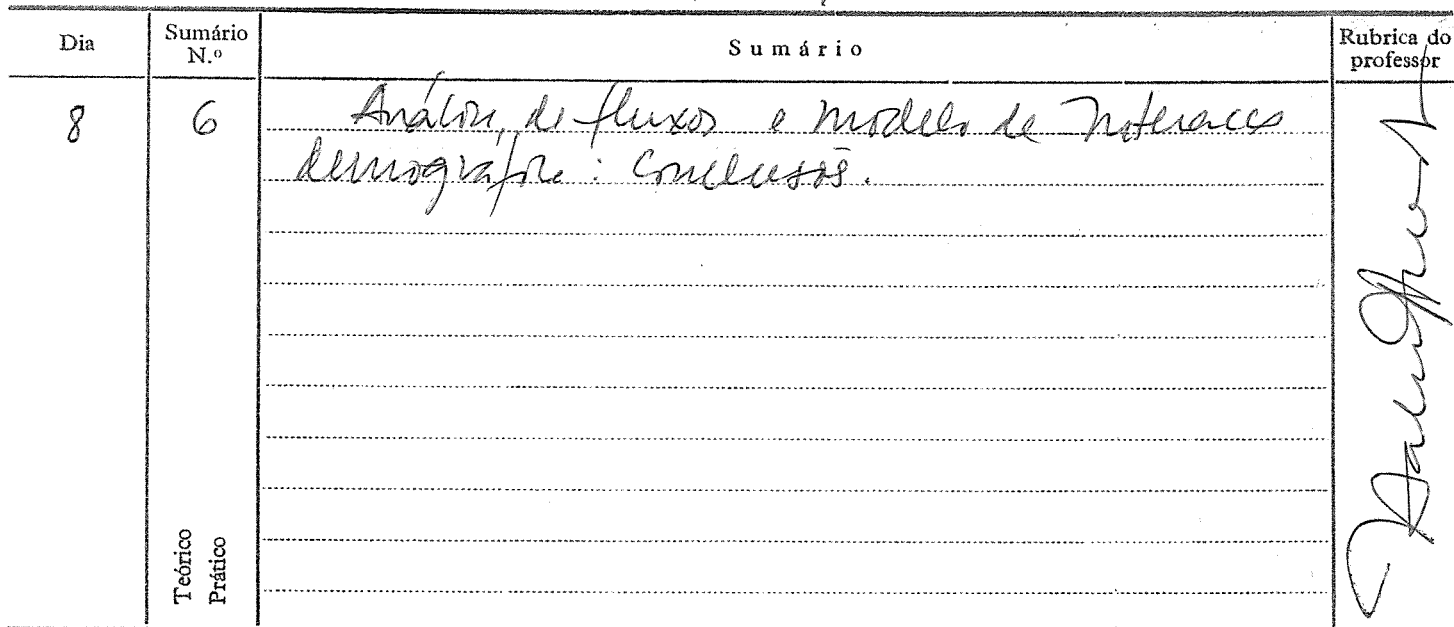 Dia
Sumário N.º
Sumário
Rubrica do professor
8
6
Análise de fluxos e modelo de interacces
demográfica: Conclusões.
Teórico
Prático